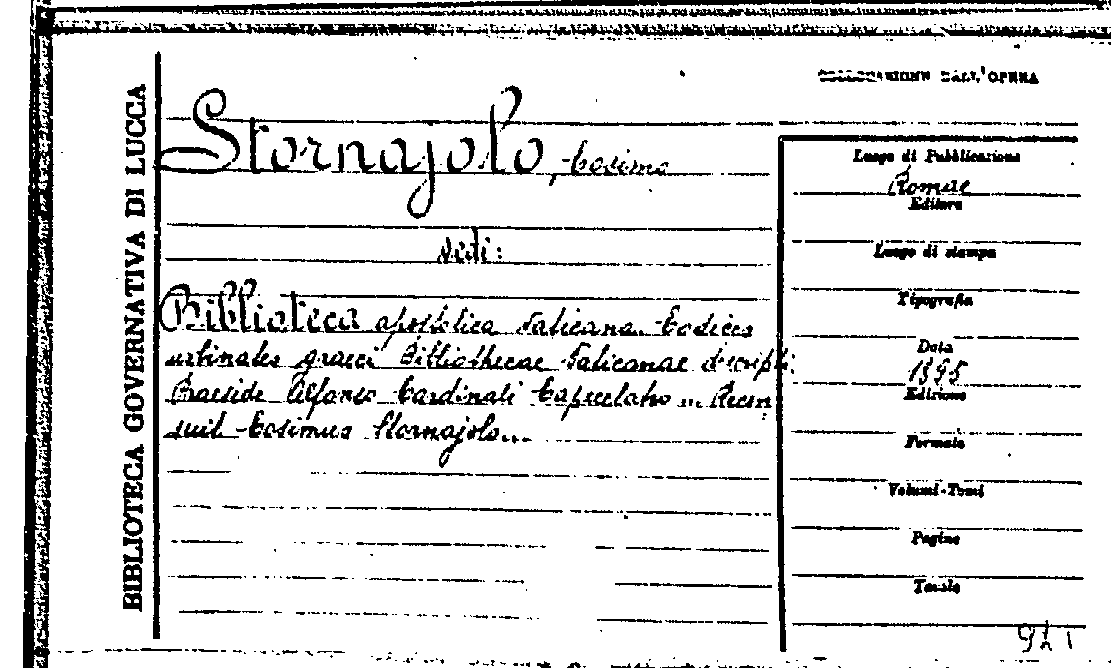 BIBLIOTECA GOVERNATIVA DI LUCCA
COLLOCAZIONE DALL'OPERA
Stornajolo, Cosimo
Vedi:
Biblioteca apostolica Vaticana. Codices
urbinates graeci Bibliothecae Vaticanae descripti.
Praeside Alfonso Cardinali Capecelatro... Recen
suit Cosimus Stornajolo...
Luogo di Pubblicazione
Romae
Editore
Luogo di stampa
Tipografia
Data
1895
Edizione
Formato
Volumi-Tomi
Pagine
Tavole